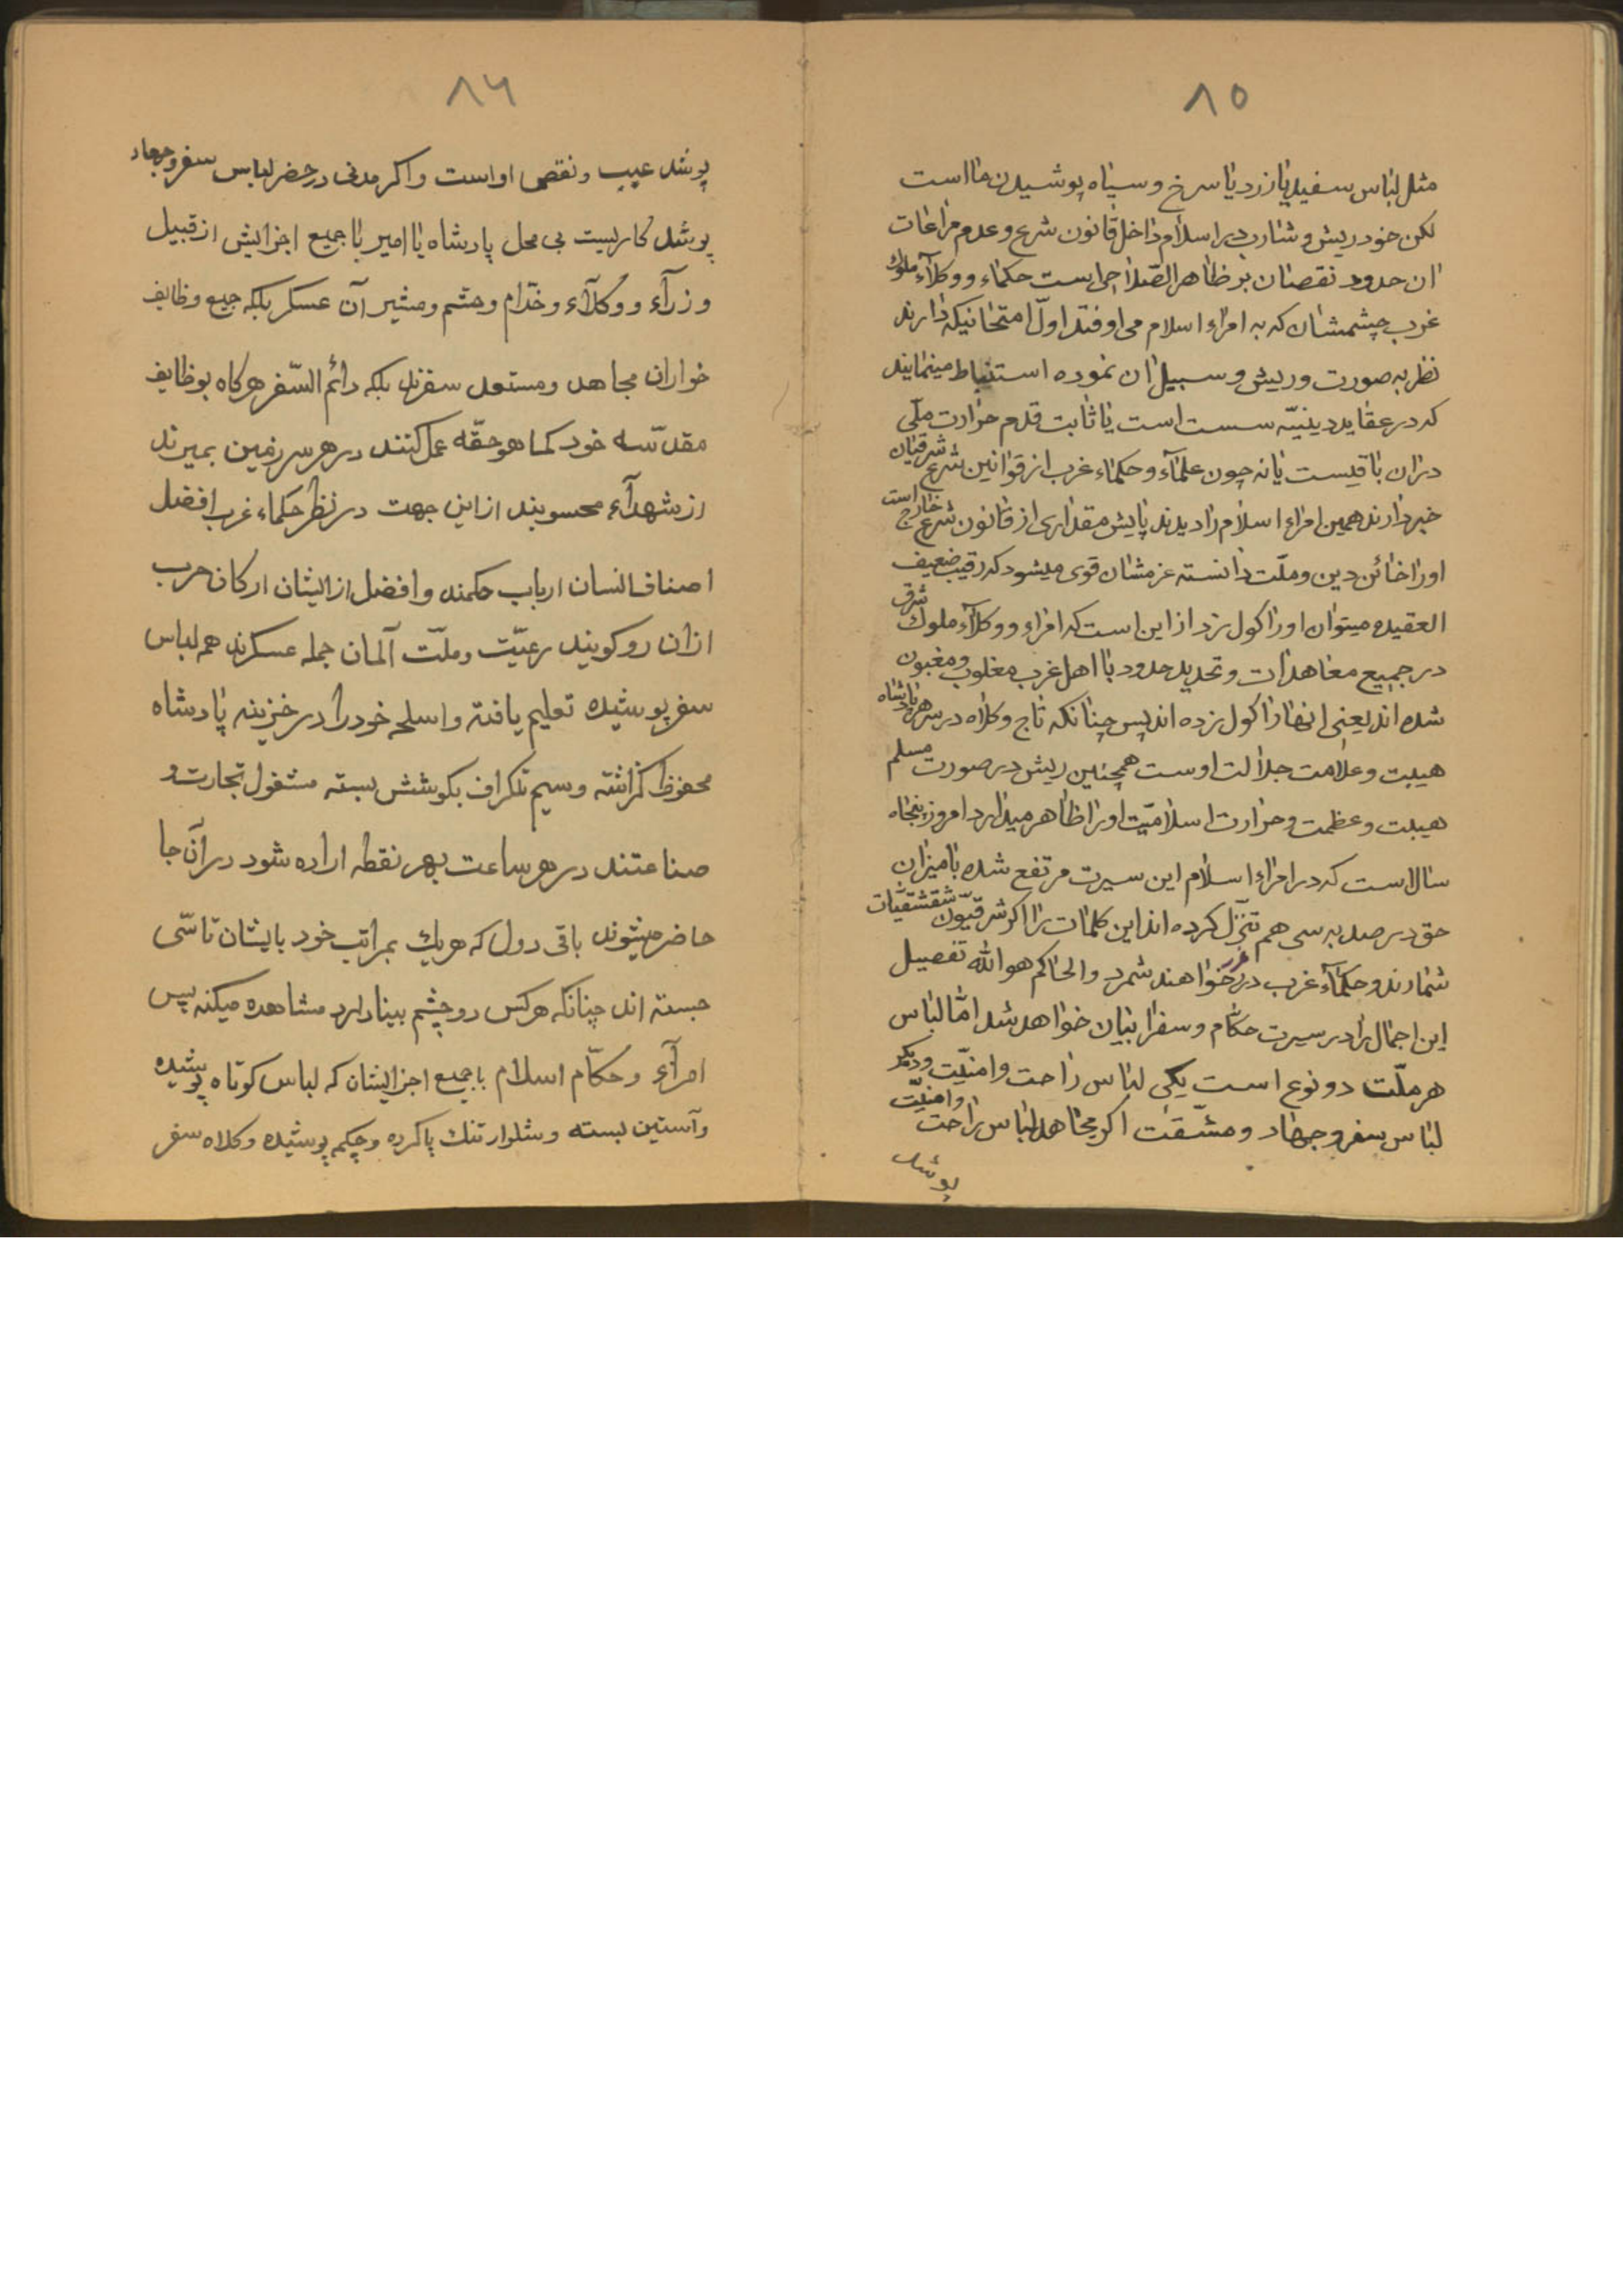 ٨٥
مثل لباس سفید یا زرد یا سرخ و سیاه پوشیدن ما است
لکن خود ریش و شارب در اسلام داخل قانون شرع و عدم مراعات
ان حدود نقصان بر ظاهر است حکماء و وکلآء ملوک
غرب چشمشان که به امراء اسلام می اوفتد اولّ امتحانیکه دارند
نظر به صورت و ریش و سبیل ان نموده استنباط مینمایند
که در عقاید دینیّه سست است یا ثابت قدم حرارت ملّی
دران باقیست یا نه چون علمآء و حکماء غرب از قوانین شرع شرقیان
خبر دارند همین امراء اسلام را دیدند یا یش مقداری از قانون شرع خارج است
اورا خائن دین و ملّت دانسته عزمشان قوی میشود که رقیب ضعیف
العقیده میتوان اورا کول زد از این است که امراء و وکلآء ملوک شرق
در جمیع معاهدات و تحدید حدود با اهل غرب مغلوب و مغبون
شده اند یعنی انها را کول زده اند پس چنانکه تاج و کلاه در سر هر پادشاه
هیبت و علامت جلالت اوست همچنین ریش در صورت مسلم
هیبت و عظمت و حرارت اسلامیّت اورا ظاهر میدارد امروز پنجاه
سالاست که در امراء اسلام این سیرت مرتفع شده با میزان
حق در صد به سی هم تنزّل کرده اند این کلمات را اکر شرقیّون شقشقیّات
شمارند و حکمآء غرب درر غرر خواهند شمرد والحاکم هو الله تفصیل
این اجمال را در سیرت حکام و سفرا بیان خواهد شد امّا لباس
هر ملّت دو نوع است یکی لباس راحت و امنیّت و دیکر
لباس سفر و جهاد و مشقت اکر مجاهد لباس راحت و امنیّت
پوشد
٨٦
پوشد عیب و نقص او است و اکر مدنی در حضر لباس سفر و جهاد
پوشد کاریست بی محل پادشاه یا امیر با جمیع اجزایش از قبیل
وزرآء و وکلآء و خدّام و حشم و مشیر آن عسکر بلکه جمیع وظایف
خواران مجاهد و مستعد سفرند بلکه دائم السّفر هرکاه بوظایف
مقدّسه خود کما هو حقّه عمل کنند در هر سر زمین بمیرند
از شهدآء محسوبند از این جهت در نظر حکماء غرب افضل
اصناف انسان ارباب حکمند و افضل از ایشان ارکان حرب
ازان رو کویند رعیّت و ملّت آلمان جمله عسکرند همه لباس
سفر پوشیده تعلیم یافته و اسلحه خود را در خزینه پادشاه
محفوظ کذاشته و سیم تلکراف بکوشش بسته مشغول تجارت و
صناعتند در هر ساعت بهر نقطه اراده شود در آن جا
حاضر میشوند باقی دول که هر یک بمراتب خود بایشان تاسّی
جسته اند چنانکه هر کس دو چشم بینا دارد مشاهده میکند پس
امرآء و حکّام اسلام با جمیع اجزایشان که لباس کوتاه پوشیده
و آستین بسته و شلوار تنک پا کرده و چکمه پوشیده و کلاه سفر